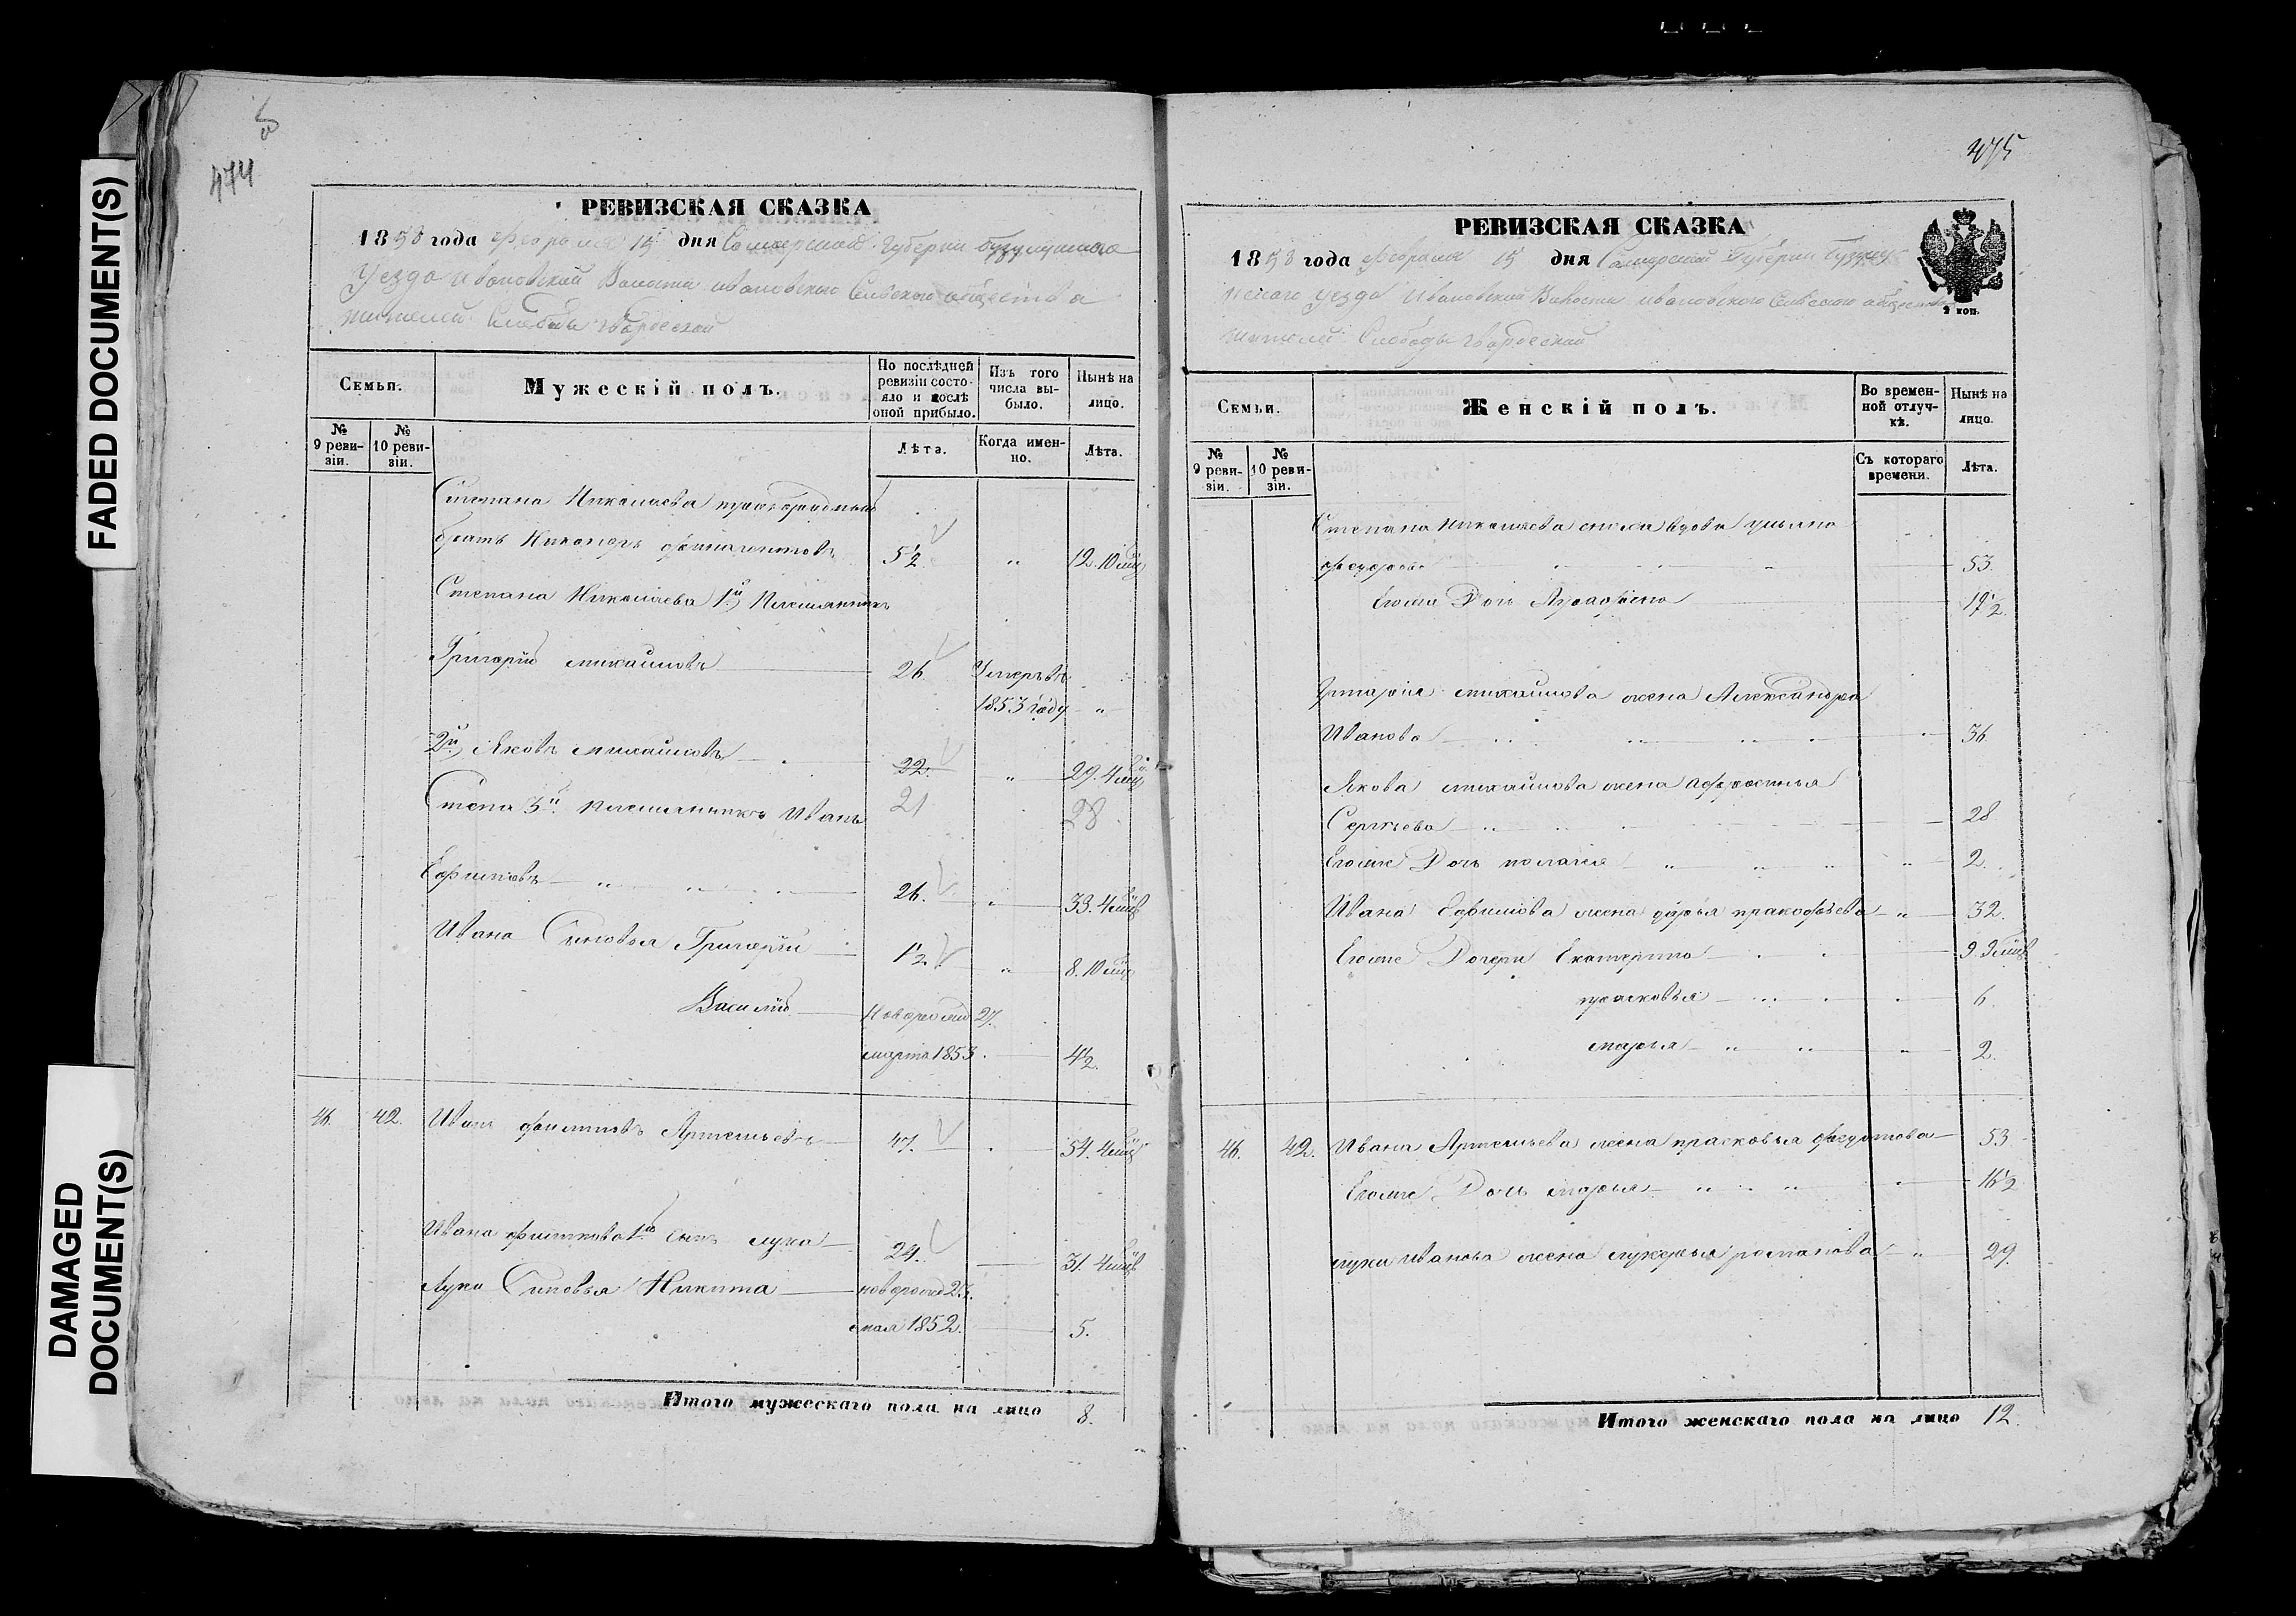 FADED DOCUMENT(S)
DAMAGED
DOCUMENT(S)
474
РЕВИЗСКАЯ СКАЗКА
1858 года Февраля 15 дня Самарской Губернии Бузулукскаго
Уезда Ивановской Волости Ивановскаго Сельскаго общества
жителей Слободы Гвардеской
Семьи.
Мужескій полъ.
По послѣдней ревизіи состояло и послѣ оной прибыло.
Изъ того числа выбыло.
Нынѣ на лицо.
№ 9 ревизіи.
№ 10 ревизіи.
Лѣта.
Когда именно.
Лѣта.
Степана Николаева троюродный
братъ Никоноръ 5½ " 12.10 мц
Степана Николаева 1й Племянникъ
Григорій михайловъ 26. Умеръ въ
1853 году "
2й Яковъ михайловъ 22. " 29. 4 мц
21 28
Степа 3й племянникъ Иванъ
Ефимовъ " " " 26. " 33. 4 мцв
Ивана Сыновья Григорій 1½ " 8. 10 мц
Василій Новорожд 27.
марта 1853. 4½
46. 42. Иванъ филиповъ Артемьевъ 47. 54. 4 мцв
Ивана филипова 1й сынъ лука 24. 31. 4 мцв
Луки Сыновья Никита новорожд 23.
мая 1852. 5.
Итого мужескаго пола на лицо 8.
475
РЕВИЗСКАЯ СКАЗКА
1858 года Февраля 15 дня Самарской Губернии Бузулу
кскаго уезда Ивановской Волости ивановского Сельского общества
жителей Слободы Гвардеской
9 коп.
Семьи.
Женскій полъ.
Во временной отлучкѣ.
Нынѣ на лицо.
№ 9 ревизіи.
№ 10 ревизіи.
Съ котораго времени.
Лѣта.
Степана николаева сноха вдова ульяна
федорова 53.
19½.
Григорія михайлова жена Александра
Иванова 36
Якова михайлова жена афросинья
Сергѣева 28
Егоже Дочь 2.
Ивана Ефимова жена дарья пракофьева " 32.
Егоже Дочери Екатерина 9. 9 мцв
прасковья 6.
марья " " " 2.
46. 42. Ивана Артемьева жена прасковья федотова 53
Егоже Дочь марья " " " 16½
луки иванова жена лукерья романова " 29.
Итого женскаго пола на лицо 12.